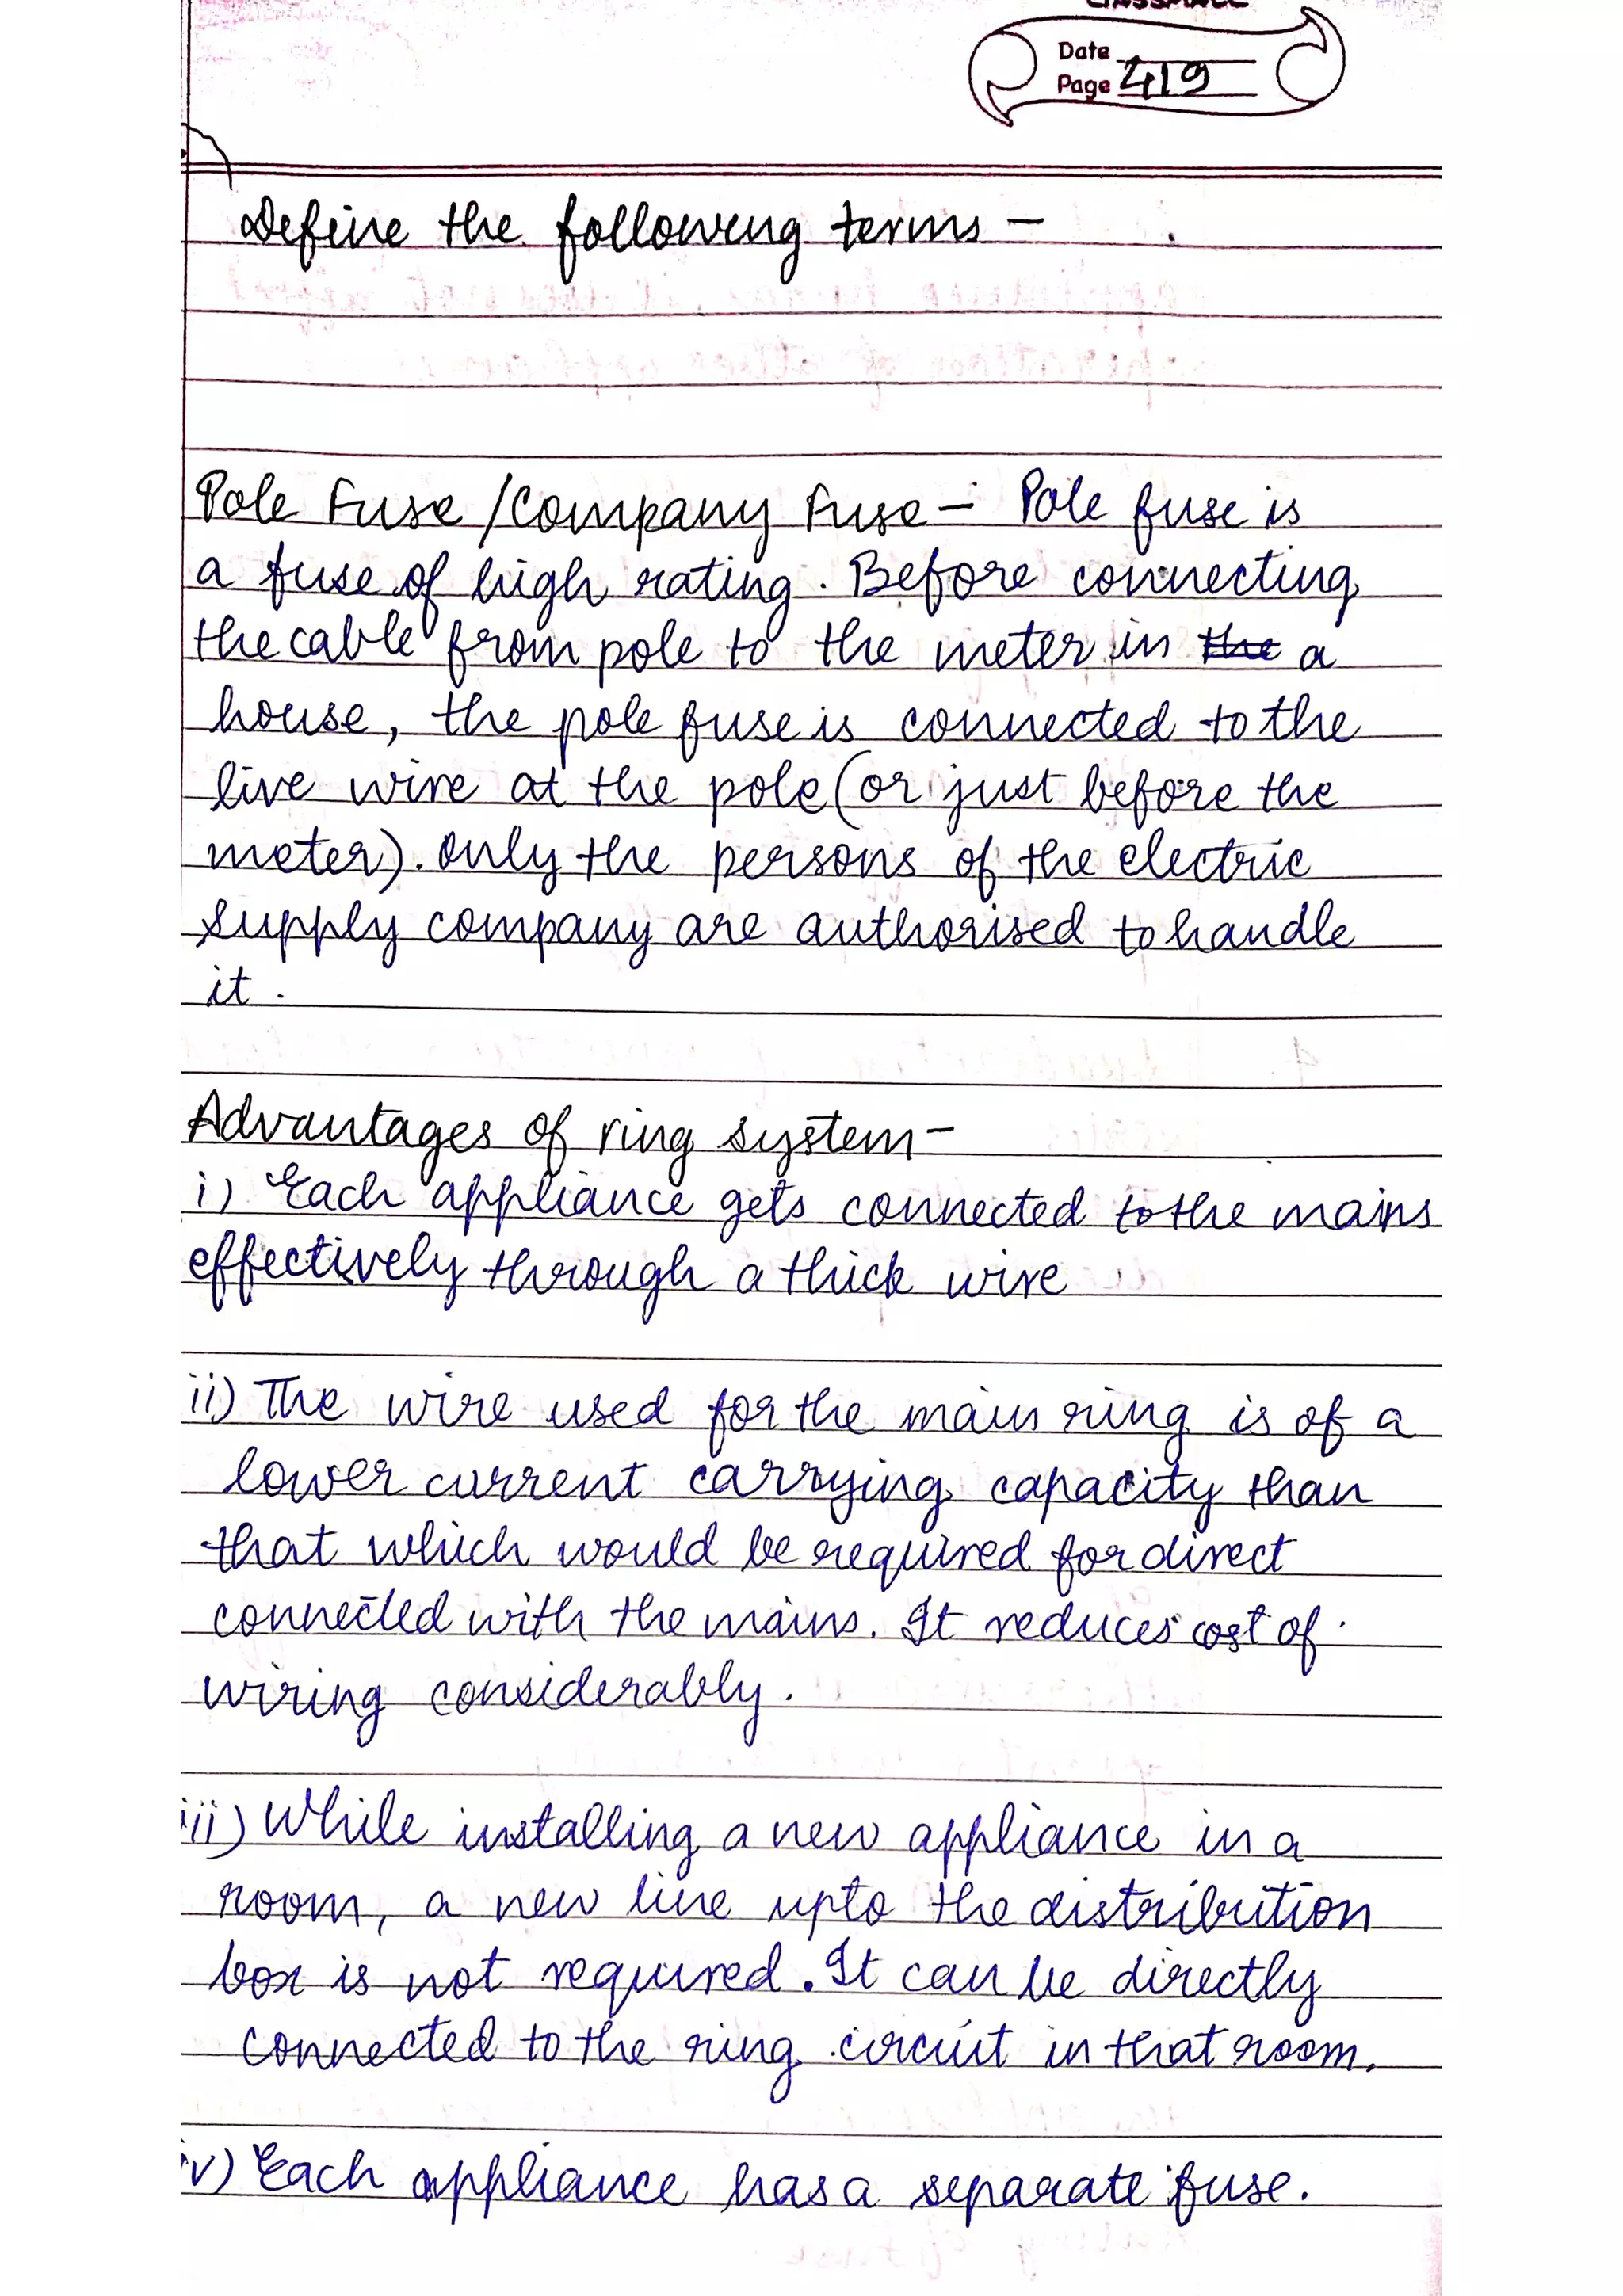 Date
Page 419
Define the following terms -
Pole Fuse / Company Fuse - Pole fuse is
a fuse of high rating. Before connecting
the cable from pole to the meter in the a
house, the pole fuse is connected to the
live wire at the pole (or just before the
meter). Only the persons of the electric
supply company are authorised to handle
it.
Advantages of ring system -
i) Each appliance gets connected to the mains
effectively through a thick wire
ii) The wire used for the main ring is of a
lower current carrying capacity than
that which would be required for direct
connected with the mains. It reduces cost of
wiring considerably.
iii) While installing a new appliance in a
room, a new line upto the distribution
box is not required. It can be directly
connected to the ring circuit in that room.
iv) Each appliance has a separate fuse.